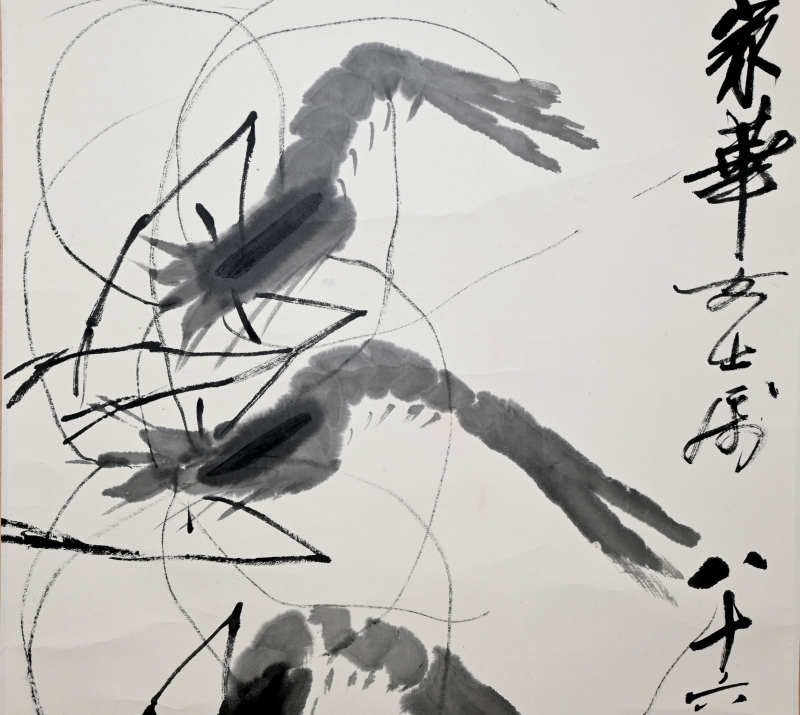 家華女士属八十六